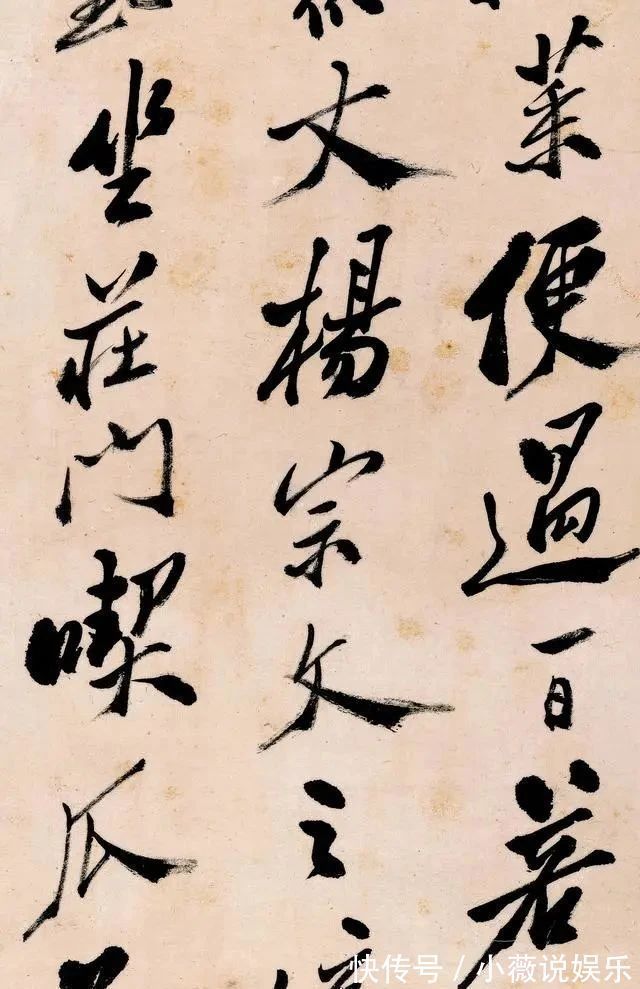 菜便過一日若
丈楊宗文之
坐莊門喫瓜
快传号／小薇说娱乐